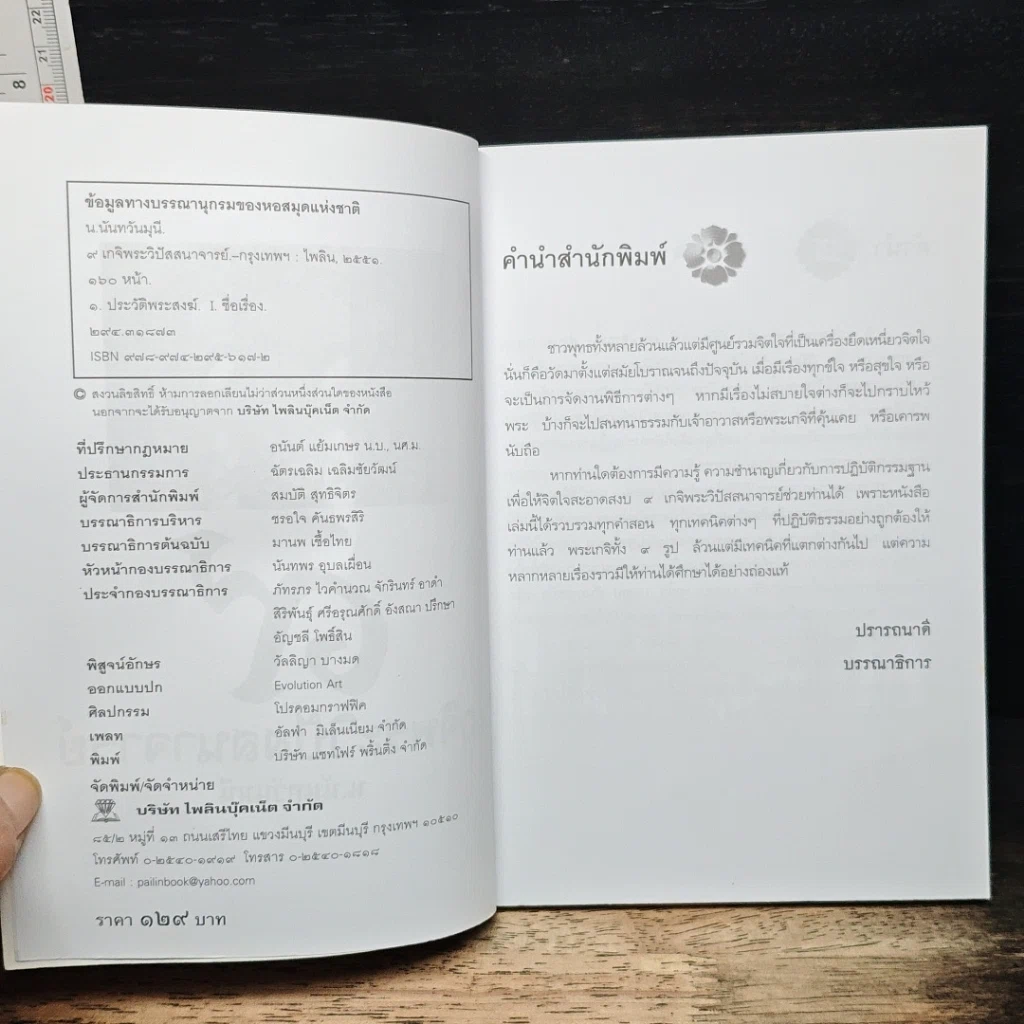 22
21
20
8
ข้อมูลทางบรรณานุกรมของหอสมุดแห่งชาติ
น.นันทวันมุนี.
๙ เกจิพระวิปัสสนาจารย์.–กรุงเทพฯ : ไพลิน, ๒๕๕๑.
๑๖๐ หน้า.
๑. ประวัติพระสงฆ์. I. ชื่อเรื่อง.
๒๙๔.๓๑๘๗๓
ISBN ๙๗๘-๙๗๔-๒๙๕-๖๑๗-๒
© สงวนลิขสิทธิ์ ห้ามการลอกเลียนไม่ว่าส่วนหนึ่งส่วนใดของหนังสือ
นอกจากจะได้รับอนุญาตจาก บริษัท ไพลินบุ๊คเน็ต จำกัด
ที่ปรึกษากฎหมาย อนันต์ แย้มเกษร น.บ., นศ.ม.
ประธานกรรมการ ฉัตรเฉลิม เฉลิมชัยวัฒน์
ผู้จัดการสำนักพิมพ์ สมบัติ สุทธิจิตร
บรรณาธิการบริหาร ชรอใจ คันธพรสิริ
บรรณาธิการต้นฉบับ มานพ เชื้อไทย
หัวหน้ากองบรรณาธิการ นันทพร อุบลเผื่อน
ประจำกองบรรณาธิการ ภัทรภร ไวคำนวณ จักรินทร์ อาดำ
สิริพันธุ์ ศรีอรุณศักดิ์ อังสณา ปรึกษา
อัญชลี โพธิ์สิน
พิสูจน์อักษร วัลลิญา บางมด
ออกแบบปก Evolution Art
ศิลปกรรม โปรคอมกราฟฟิค
เพลท อัลฟ่า มิเล็นเนียม จำกัด
พิมพ์ บริษัท แซทโฟร์ พริ้นติ้ง จำกัด
จัดพิมพ์/จัดจำหน่าย
บริษัท ไพลินบุ๊คเน็ต จำกัด
๘๕/๒ หมู่ที่ ๑๓ ถนนเสรีไทย แขวงมีนบุรี เขตมีนบุรี กรุงเทพฯ ๑๐๕๑๐
โทรศัพท์ ๐-๒๕๔๐-๑๙๑๙ โทรสาร ๐-๒๕๔๐-๑๘๑๘
E-mail : pailinbook@yahoo.com
ราคา ๑๒๙ บาท
คำนำสำนักพิมพ์
ชาวพุทธทั้งหลายล้วนแล้วแต่มีศูนย์รวมจิตใจที่เป็นเครื่องยึดเหนี่ยวจิตใจ
นั่นก็คือวัดมาตั้งแต่สมัยโบราณจนถึงปัจจุบัน เมื่อมีเรื่องทุกข์ใจ หรือสุขใจ หรือ
จะเป็นการจัดงานพิธีการต่างๆ หากมีเรื่องไม่สบายใจต่างก็จะไปกราบไหว้
พระ บ้างก็จะไปสนทนาธรรมกับเจ้าอาวาสหรือพระเกจิที่คุ้นเคย หรือเคารพ
นับถือ
หากท่านใดต้องการมีความรู้ ความชำนาญเกี่ยวกับการปฏิบัติกรรมฐาน
เพื่อให้จิตใจสะอาดสงบ ๙ เกจิพระวิปัสสนาจารย์ช่วยท่านได้ เพราะหนังสือ
เล่มนี้ได้รวบรวมทุกคำสอน ทุกเทคนิคต่างๆ ที่ปฏิบัติธรรมอย่างถูกต้องให้
ท่านแล้ว พระเกจิทั้ง ๙ รูป ล้วนแต่มีเทคนิคที่แตกต่างกันไป แต่ความ
หลากหลายเรื่องราวมีให้ท่านได้ศึกษาได้อย่างถ่องแท้
ปรารถนาดี
บรรณาธิการ